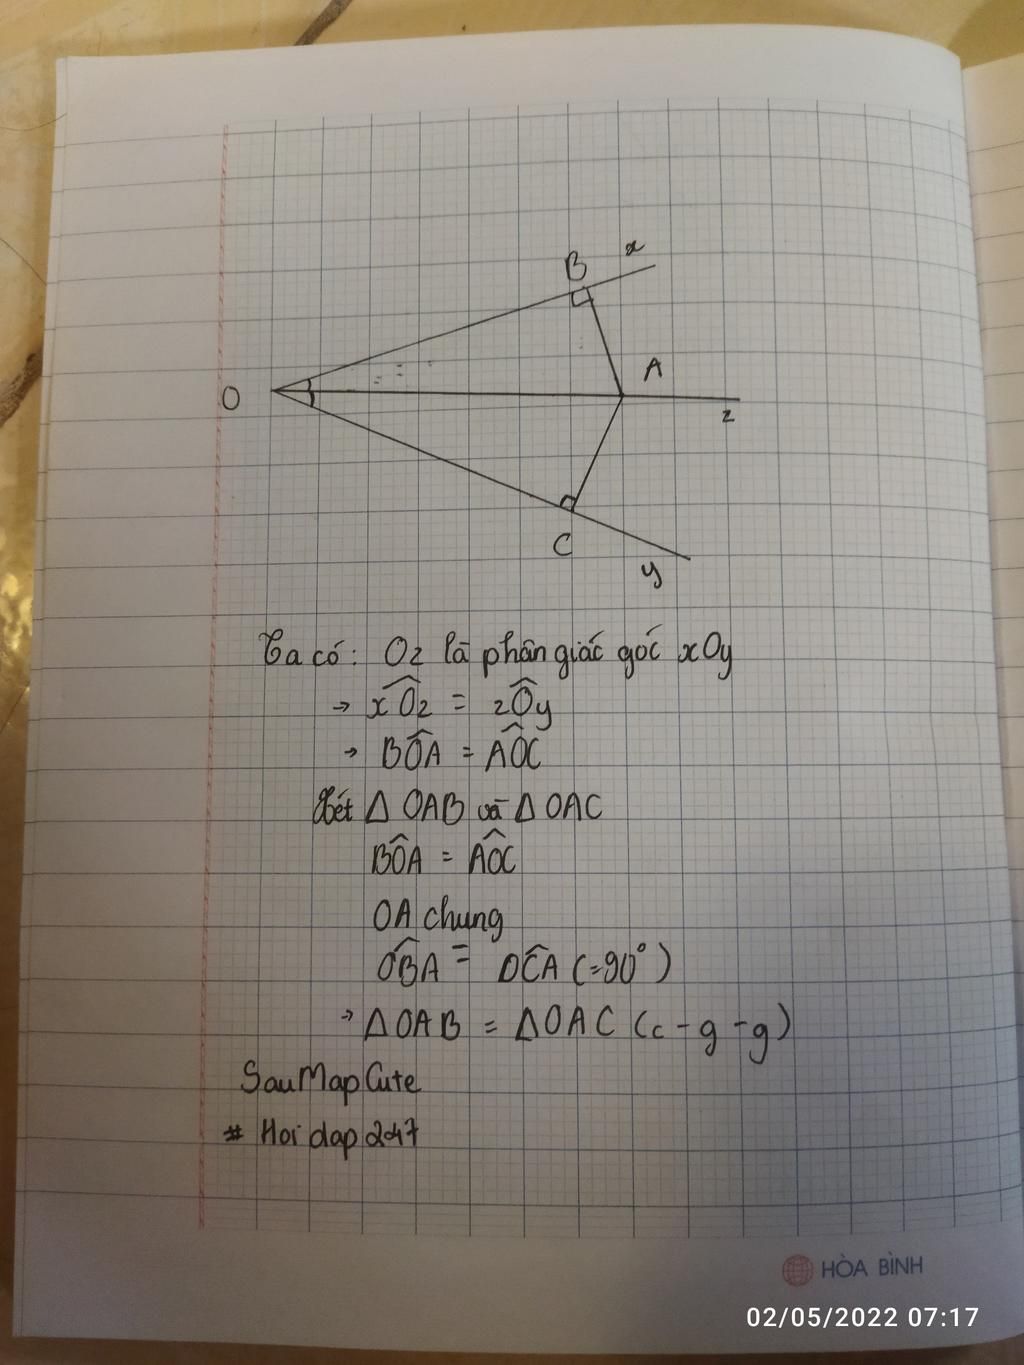 B x
A
O
z
C
y
Ta có: Oz là phân giác góc xOy
→ xÔz = zÔy
→ BÔA = AÔC
Xét Δ OAB và Δ OAC
BÔA = AÔC
OA chung
OB̂A = OĈA (=90°)
→ ΔOAB = ΔOAC (c-g-g)
SauMapCute
# Hoi dap 247
HÒA BÌNH
02/05/2022 07:17